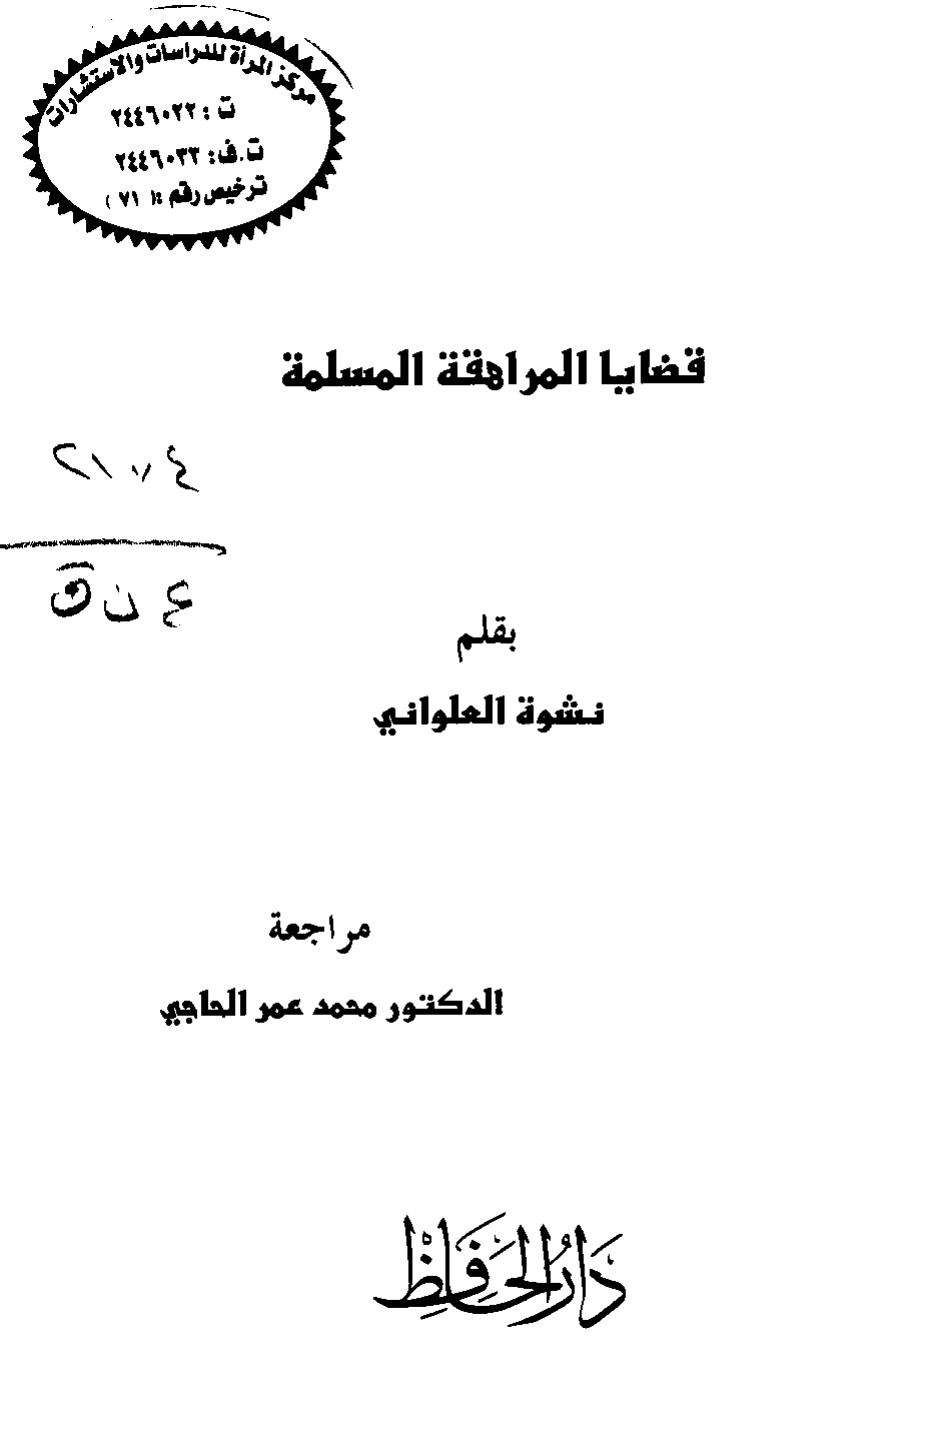 مركز المرأة للدراسات والاستشارات
ت : ٢٤٤٦٠٢٢
ت.ف: ٢٤٤٦٠٣٣
ترخيص رقم :( ٧١ )
قضايا المراهقة المسلمة
ع ن
بقلم
نشوة العلواني
مراجعة
الدكتور محمد عمر الحاجي
دَارُ الحَافِظِ